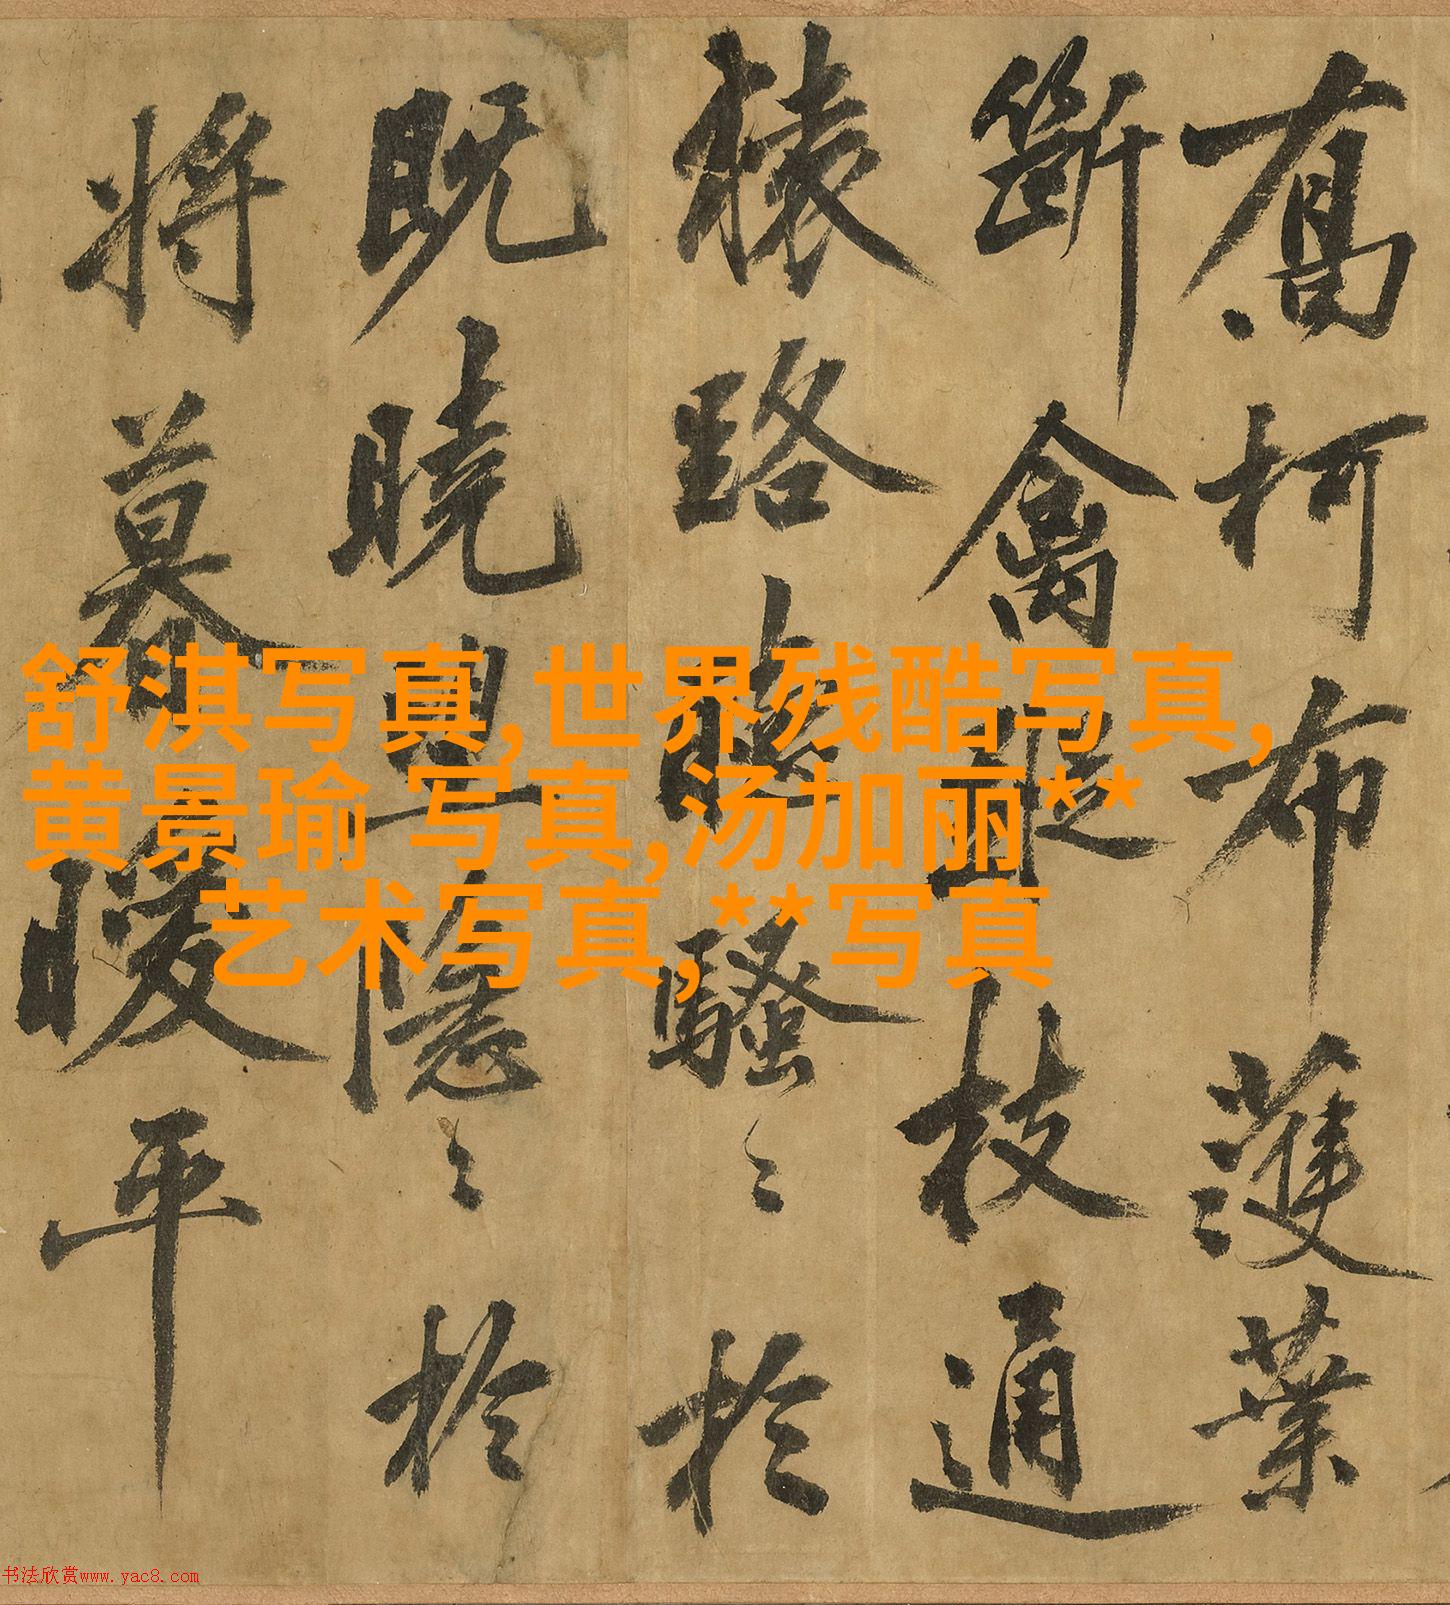 喬柯布濩葉
斷禽枝通
猿路聽騷〻於
既曉隱〻於
將暮暖平
舒淇写真,世界残酷写真,
黄景瑜 写真,汤加丽**
艺术写真,**写真
书法欣赏www.yac8.com